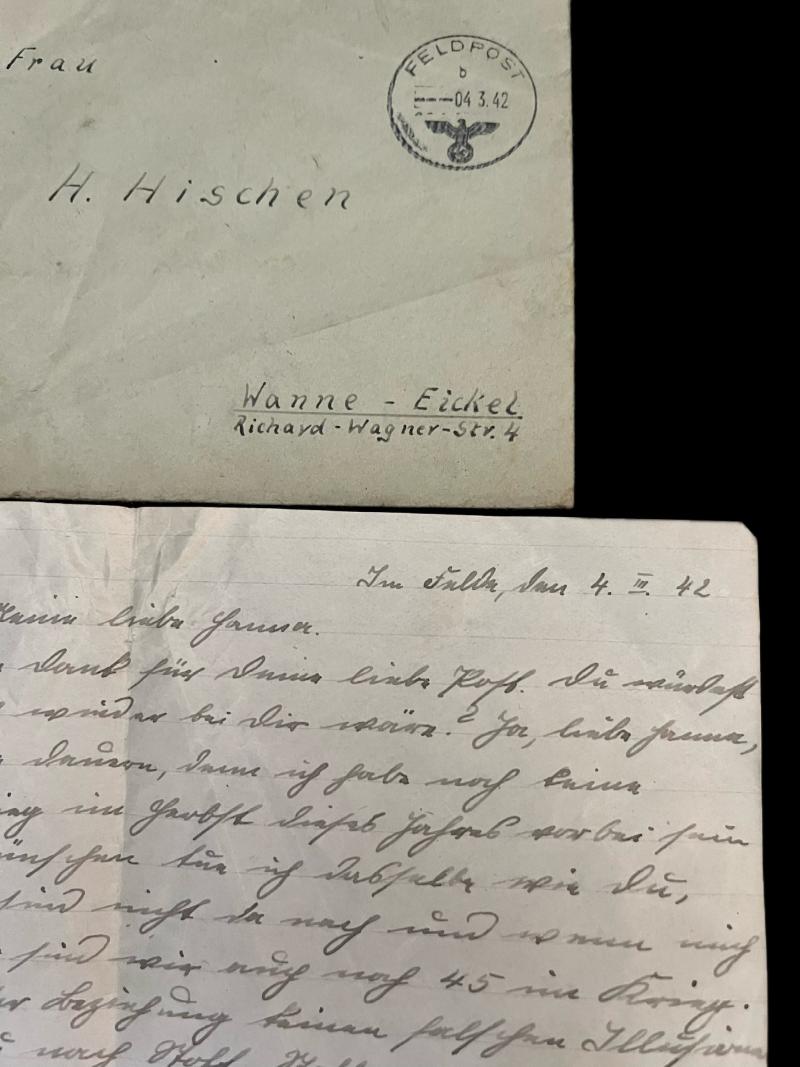 Frau
FELDPOST
b
04.3.42
H. Hischen
Wanne - Eickel
Richard-Wagner-Str. 4
Im Felde, den 4. III. 42
Meine liebe Hanna.
Dank für Deine liebe Post. Du würdest
wieder bei Dir wäre? Ja, liebe Hanna,
dauern, denn ich habe noch keine
im Herbst dieses Jahres vorbei sein
wünschen tue ich dasselbe wie Du,
sind nicht da nach und wenn mich
sind wir auch noch 45 im Krieg.
Beziehung keinen falschen Illusionen
nach